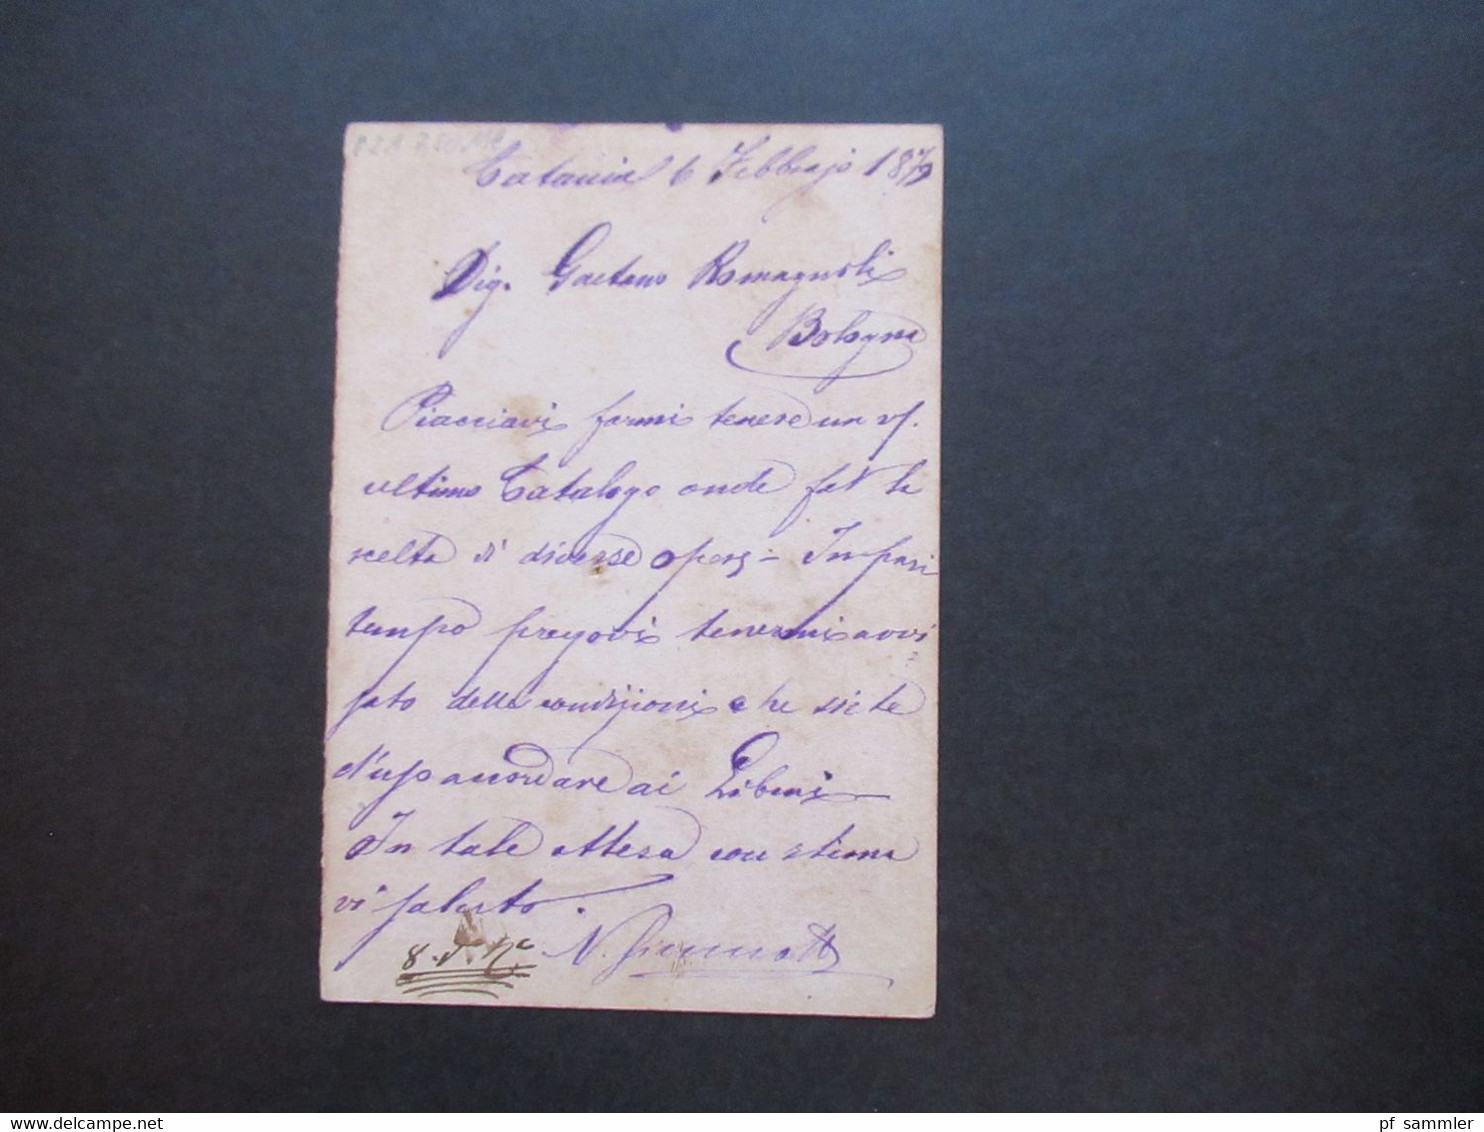 Catania 6 Febbrajo 1879
Sig. Gaetano Romagnoli
Bologna
Piacciavi farmi tenere un vs.
ultimo Catalogo onde far la
scelta di diverse opere - In pari
tempo pregovi tenermi avvi
sato delle condizioni che siete
d'uso accordare ai Librai
In tale attesa con stima
vi saluto.
N.
delcampe.net
pf sammler